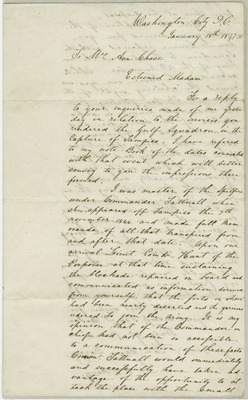 Washington City D.C.
January 18th 1847
To Mrs Ann Chase
Esteemed Madam
For a reply
to your inquiries made of me yester
day in relation to the services you
rendered the Gulf Squadron in the
capture of Tampico, I have refered
to my note Book of the dates connected
with that event which will better
convey to you the impressions there
formed.
I was master of the Spitfire
under Commander Tattnall when
she appeared off Tampico the
November 1846 and made full mem
oranda of all that transpired from
and after that date. Upon our
arrival Lieut Comdr Hunt of the
Porpoise at that time sustaining
the blockade repaired on board and
communicated as information derived
from yourself that the forts in
had been partly deserted and the guns
to join the Army. It is my
opinion that if the Commander in
chief had not been in accessible
to a communication of these facts
Comm Tattnall would immediately
and successfully have taken ad
vantage of the opportunity to at
tack the place with the small